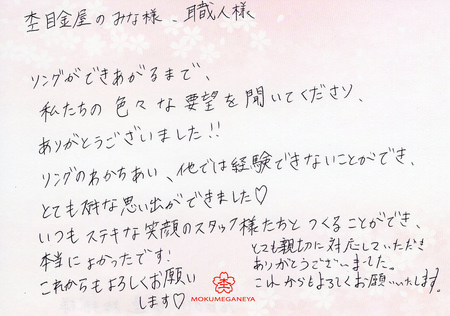 杢目金屋のみな様、職人様
リングができあがるまで、
私たちの色々な要望を聞いてくださり、
ありがとうございました!!
リングのわかちあい、他では経験できないことができ、
とても素敵な思い出ができました♡
いつもステキな笑顔のスタッフ様たちとつくることができ、
本当によかったです!
これからもよろしくお願い
します♡
とても親切に対応していただき
ありがとうございました。
これからもよろしくお願いいたします。
MOKUMEGANEYA